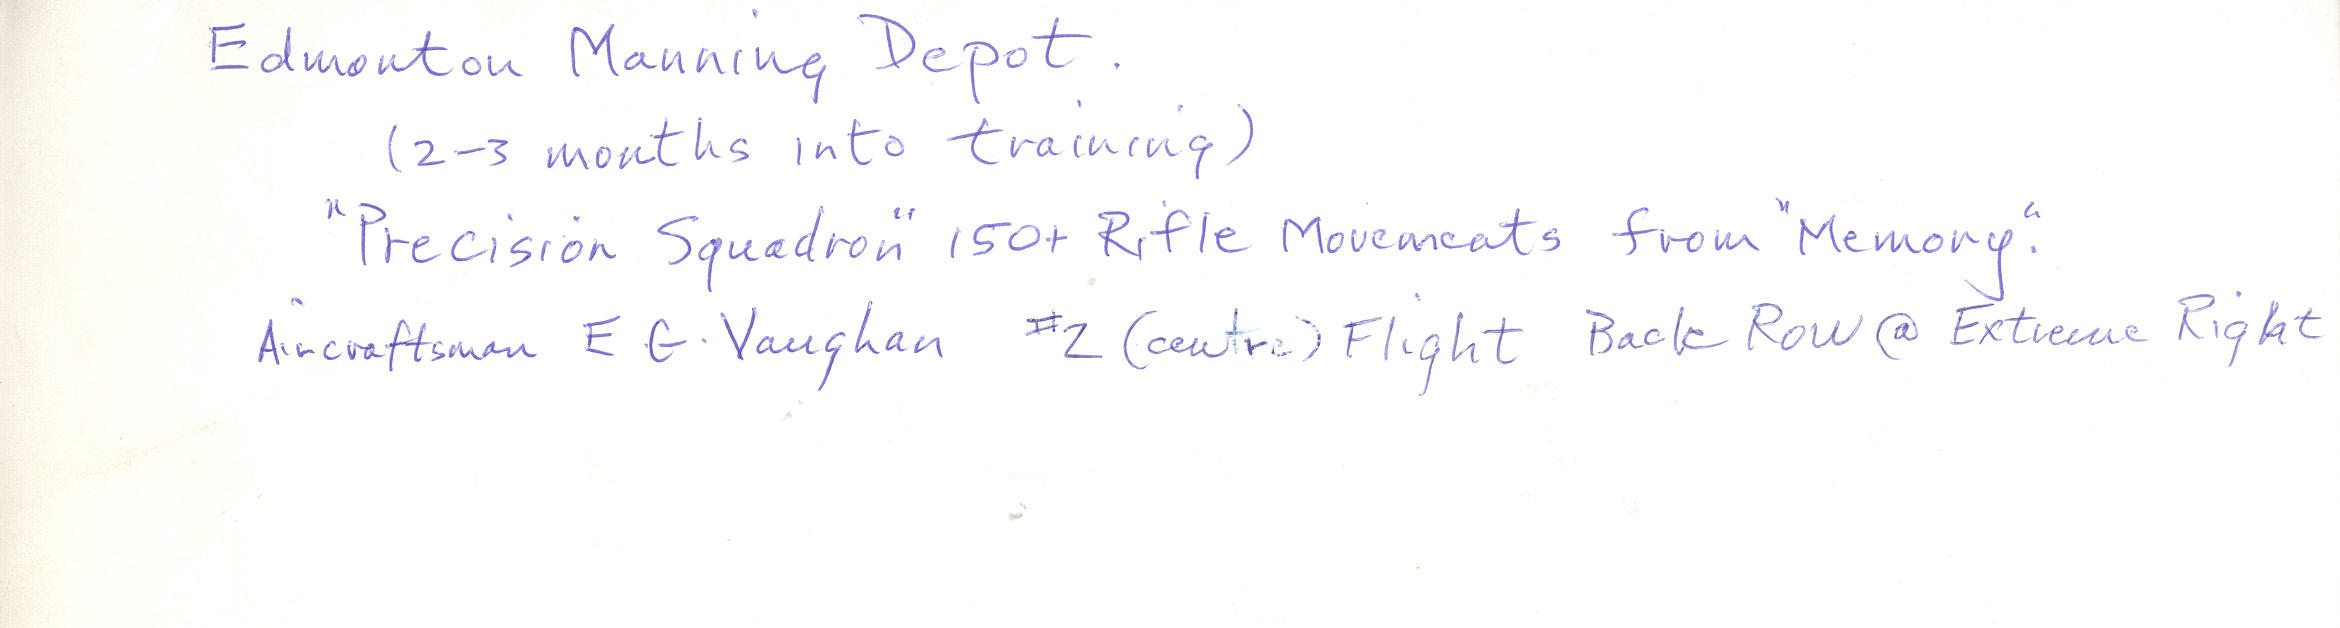 Edmonton Manning Depot.
(2-3 months into training)
"Precision Squadron" 150+ Rifle Movements from "Memory".
Aircraftsman E G. Vaughan #2 (centre) Flight Back Row @ Extreme Right